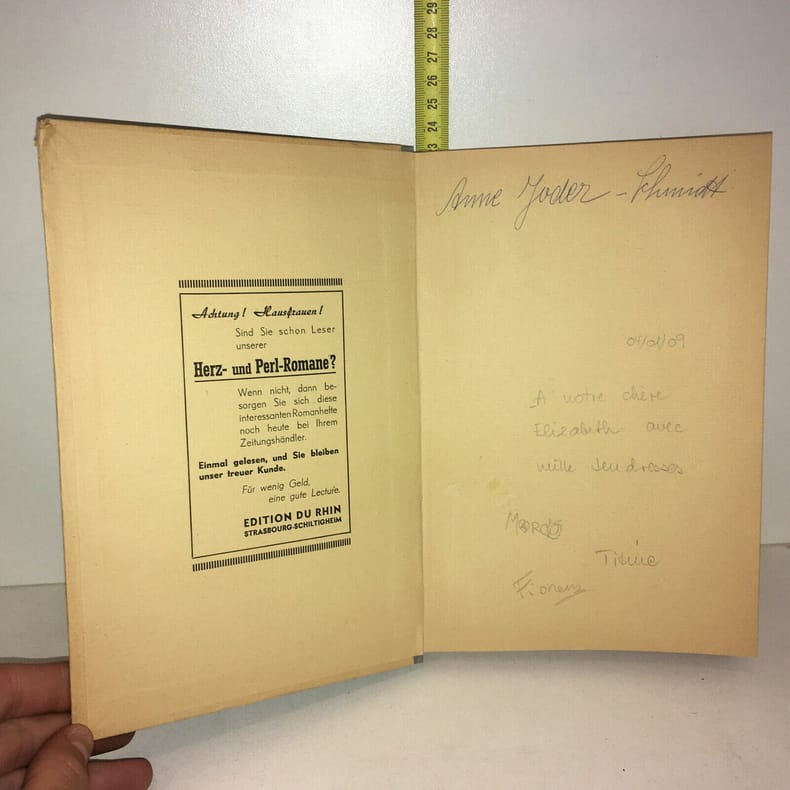 Achtung! Hausfrauen!
Sind Sie schon Leser
unserer
Herz- und Perl-Romane?
Wenn nicht, dann be-
sorgen Sie sich diese
interessanten Romanhefte
noch heute bei Ihrem
Zeitungshändler.
Einmal gelesen, und Sie bleiben
unser treuer Kunde.
Für wenig Geld,
eine gute Lecture.
EDITION DU RHIN
STRASBOURG-SCHILTIGHEIM
23 24 25 26 27 28 29
Anne Yoder - Schmidt
04/01/09
A notre chère
Elizabeth avec
mille tendresses
Titine